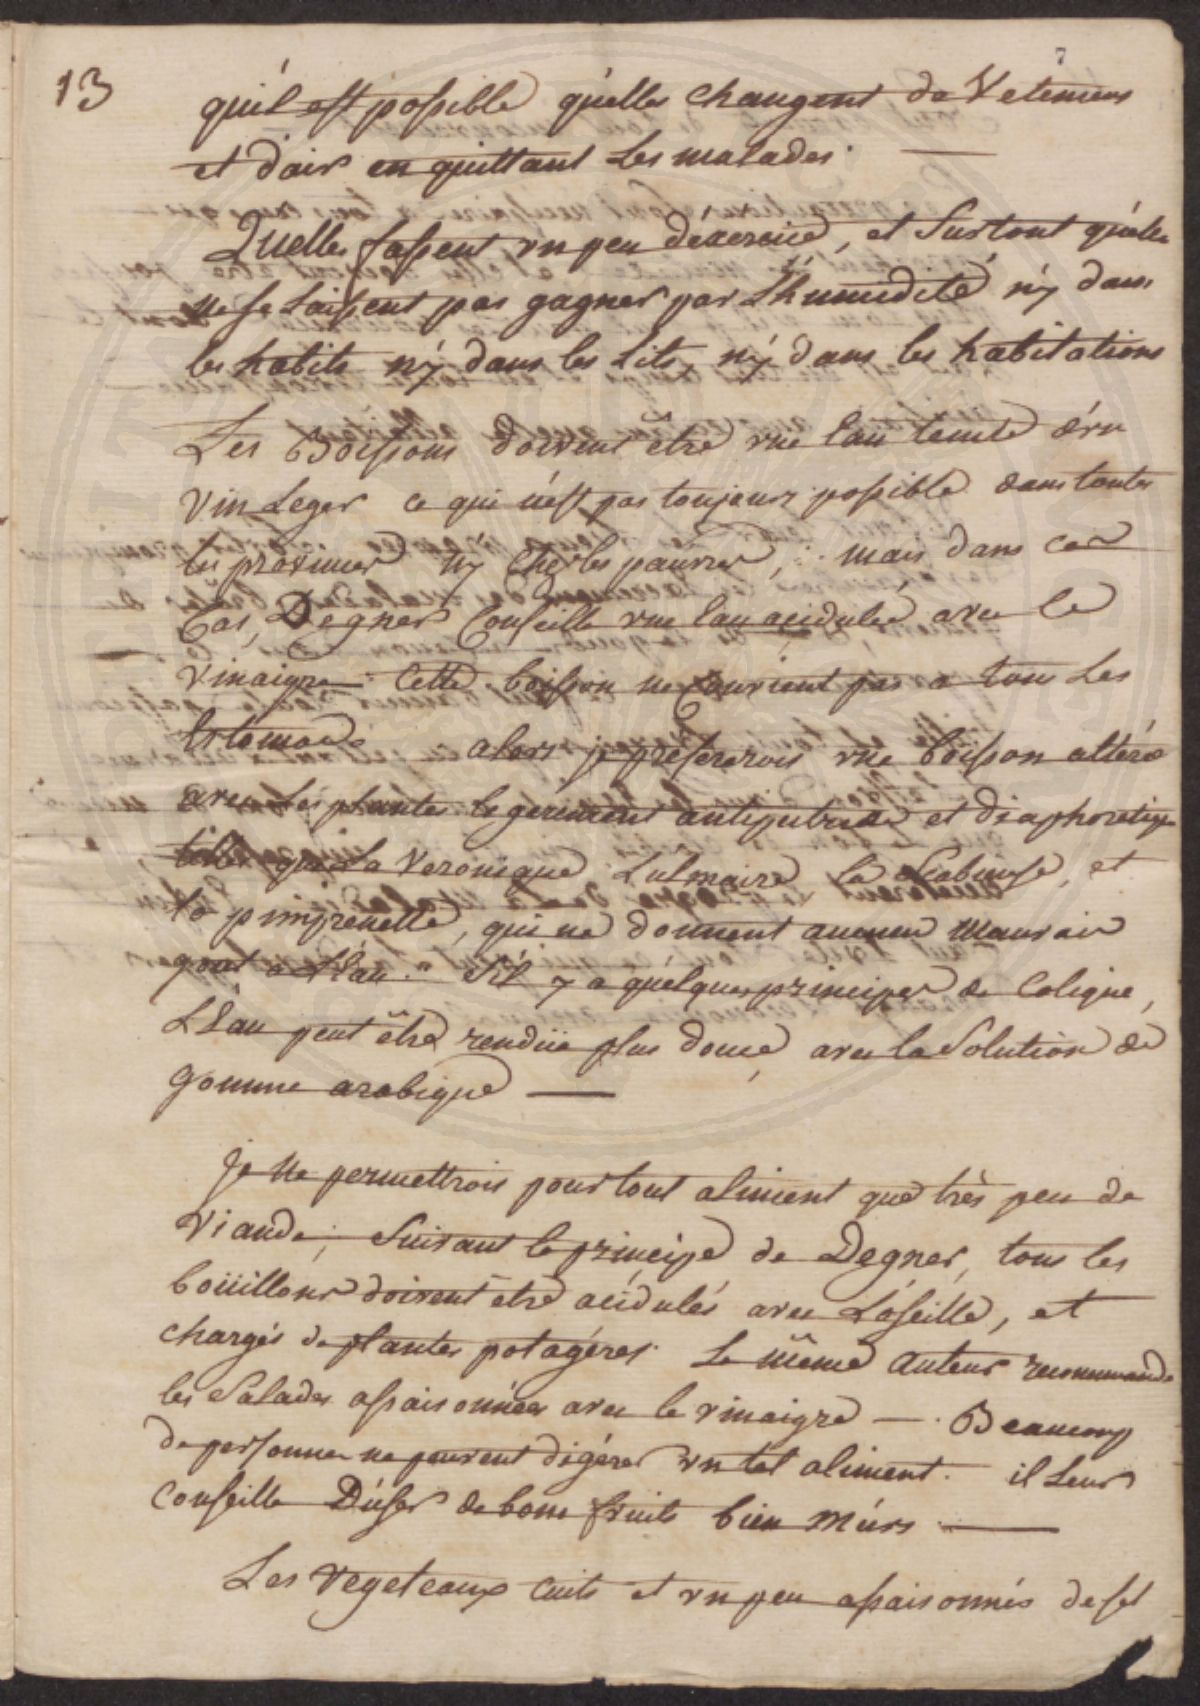 7
13
qu'il est possible qu'elles changent de Vetemens
et d'air en quittant Les malades. —
Quelles fassent un peu d'éxercice, et Surtout qu'elles
ne se Laissent pas gagner par L'humidité n'y dans
les habits n'y dans les Lits, n'y dans les habitations
Les Boissons doivent être une Eau teinte d'un
vin Leger ce qui n'est pas toujours possible dans toutes
les provinces n'y Chez les pauvres, mais dans ces
Cas, Degner Conseille une Eau acidulée avec le
vinaigre Cette boisson ne Convient pas a tous Les
Estomacs alors je prefererois une boisson altérée
avec des plantes legerement antiputrides et diaphoretiques
telles que La Veronique L'ulmaire la Scabieuse, et
la pimprenelle, qui ne donnent aucun mauvais
gout a L'Eau. S'il y a quelques principes de Colique,
L'Eau peut être rendüe plus douce, avec la Solution de
gomme arabique —
je Ne permettrois pour tout aliment que très peu de
Viande, Suivant le principe de Degner, tous les
boüillons doivent être acidulés avec L'oseille, et
chargés de plantes potagéres. Le même auteur recommande
les Salades assaisonnées avec le vinaigre —. Beaucoup
de personnes ne peuvent digérer un tel aliment. il Leur
Conseille D'user de bons fruits bien mûrs —
Les vegeteaux cuits et un peu assaisonnés de sel